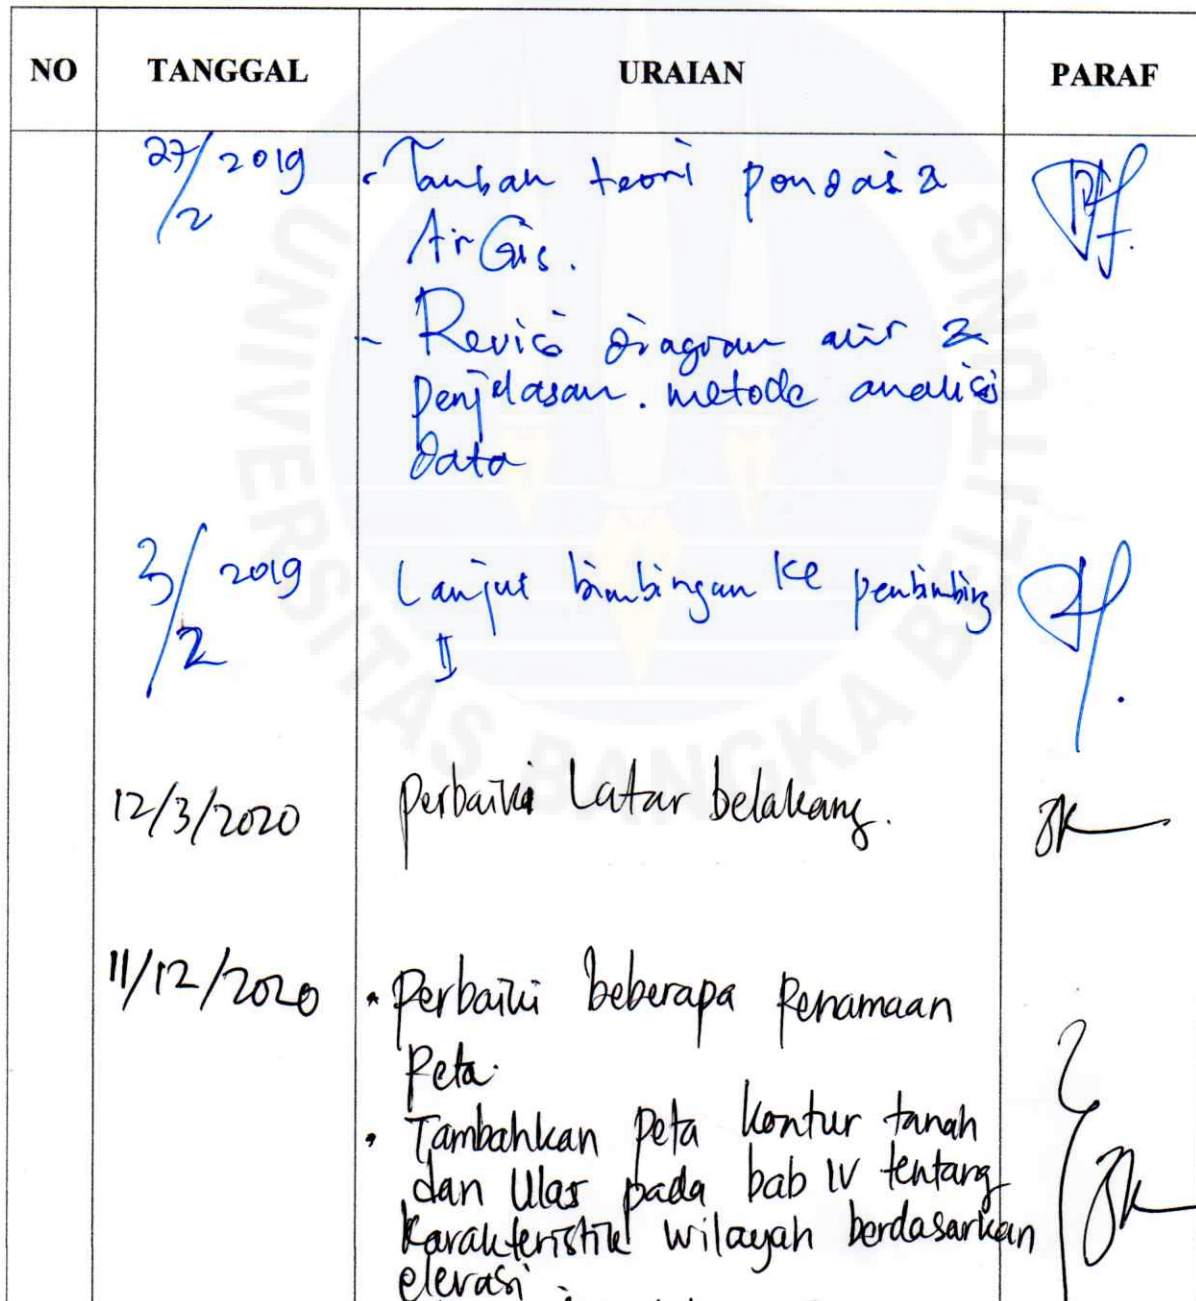 NO TANGGAL URAIAN PARAF
27/2 2019 - Tambah teori pondasi &
Ar Gis.
- Revisi diagram alir &
penjelasan. metode analisis
data
3/2 2019 Lanjut bimbingan ke pembimbing
II
12/3/2020 Perbaiki Latar belakang.
11/12/2020 • Perbaiki beberapa Penamaan
Peta.
• Tambahkan Peta kontur tanah
dan Ulas pada bab IV tentang
karakteristik wilayah berdasarkan
elevasi
UNIVERSITAS BANGKA BELITUNG